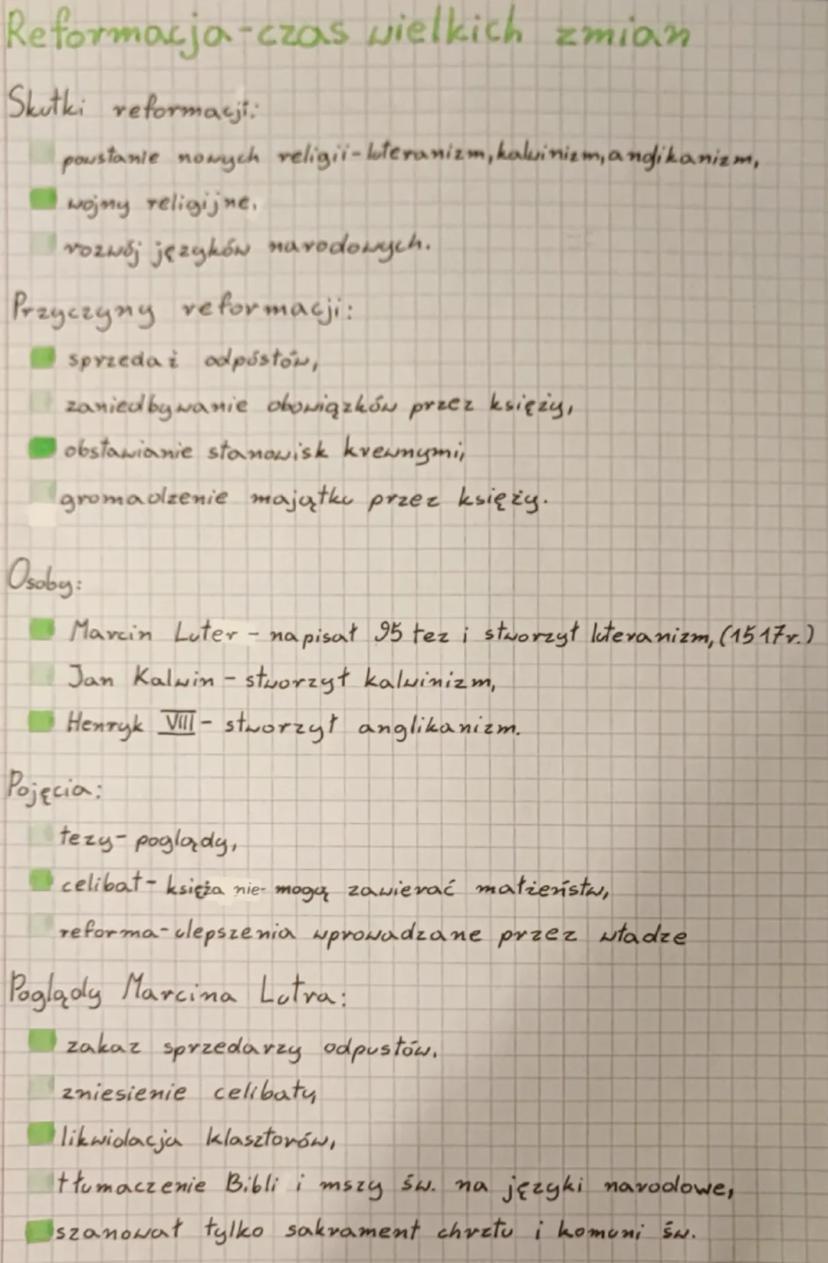 Reformacja-czas wielkich zmian
Skutki reformacji:
powstanie nowych religii-luteranizm, kalwinizm, anglikanizm,
wojny religijne,
rozwój języków narodowych.
Przyczyny reformacji:
sprzedaż odpóstów,
zaniedbywanie obowiązków przez księży,
obstawianie stanowisk krewnymi,
gromadzenie majątku przez księży.
Osoby:
Marcin Luter - napisał 95 tez i stworzył luteranizm, (1517r.)
Jan Kalwin - stworzył kalwinizm,
Henryk VIII - stworzył anglikanizm.
Pojęcia:
tezy - poglądy,
celibat - księża nie mogą zawierać małżeństw,
reforma - ulepszenia wprowadzane przez władze
Poglądy Marcina Lutra:
zakaz sprzedarzy odpustów,
zniesienie celibatu,
likwidacja klasztorów,
tłumaczenie Bibli i mszy św. na języki narodowe,
szanował tylko sakrament chrztu i komuni św.